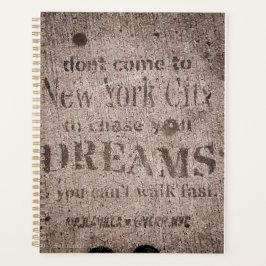 dont come to
New York City
to chase your
DREAMS
if you can't walk fast.